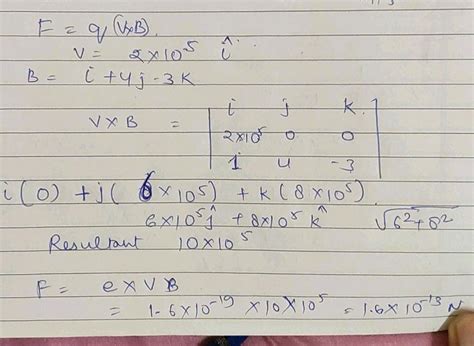 F = q (V×B).
V = 2×10⁵ î
B = i + 4j - 3k
i j k
V×B = 2×10⁵ 0 0
1 4 -3
i(0) + j(6×10⁵) + k(8×10⁵)
6×10⁵ĵ + 8×10⁵ k̂ √6²+8²
Resultant 10×10⁵
F = e×VB
= 1.6×10⁻¹⁹ ×10×10⁵ = 1.6×10⁻¹³ N